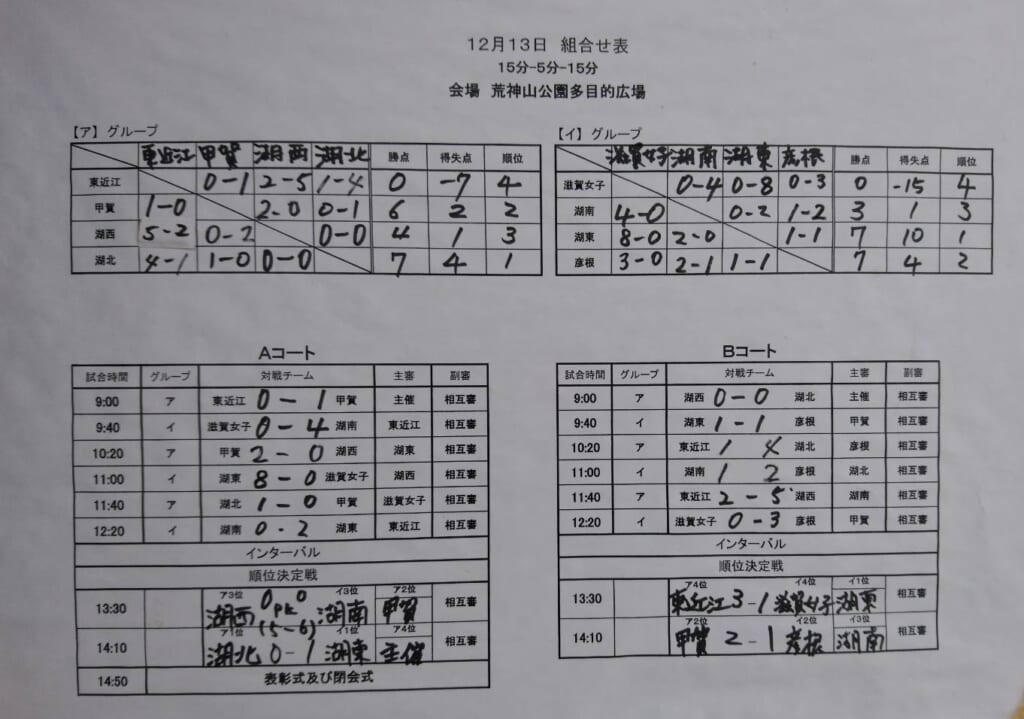 12月13日 組合せ表
15分-5分-15分
会場 荒神山公園多目的広場
【ア】グループ
東近江 甲賀 湖西 湖北 勝点 得失点 順位
東近江 0-1 2-5 1-4 0 -7 4
甲賀 1-0 2-0 0-1 6 2 2
湖西 5-2 0-2 0-0 4 1 3
湖北 4-1 1-0 0-0 7 4 1
【イ】グループ
滋賀女子 湖南 湖東 彦根 勝点 得失点 順位
滋賀女子 0-4 0-8 0-3 0 -15 4
湖南 4-0 0-2 1-2 3 1 3
湖東 8-0 2-0 1-1 7 10 1
彦根 3-0 2-1 1-1 7 4 2
Aコート
試合時間 グループ 対戦チーム 主審 副審
9:00 ア 東近江 0-1 甲賀 主催 相互審
9:40 イ 滋賀女子 0-4 湖南 東近江 相互審
10:20 ア 甲賀 2-0 湖西 湖東 相互審
11:00 イ 湖東 8-0 滋賀女子 湖西 相互審
11:40 ア 湖北 1-0 甲賀 滋賀女子 相互審
12:20 イ 湖南 0-2 湖東 東近江 相互審
インターバル
順位決定戦
ア3位 イ3位 ア2位
13:30 湖西 0 0 湖南 甲賀 相互審
PK
(5-6)
ア1位 イ1位 ア4位
14:10 湖北 0-1 湖東 主催 相互審
14:50 表彰式及び閉会式
Bコート
試合時間 グループ 対戦チーム 主審 副審
9:00 ア 湖西 0-0 湖北 主催 相互審
9:40 イ 湖東 1-1 彦根 甲賀 相互審
10:20 ア 東近江 1 4 湖北 彦根 相互審
11:00 イ 湖南 1 2 彦根 湖北 相互審
11:40 ア 東近江 2-5 湖西 湖南 相互審
12:20 イ 滋賀女子 0-3 彦根 甲賀 相互審
インターバル
順位決定戦
ア4位 イ4位 イ1位
13:30 東近江 3-1 滋賀女子 湖東 相互審
ア2位 イ2位 イ3位
14:10 甲賀 2-1 彦根 湖南 相互審